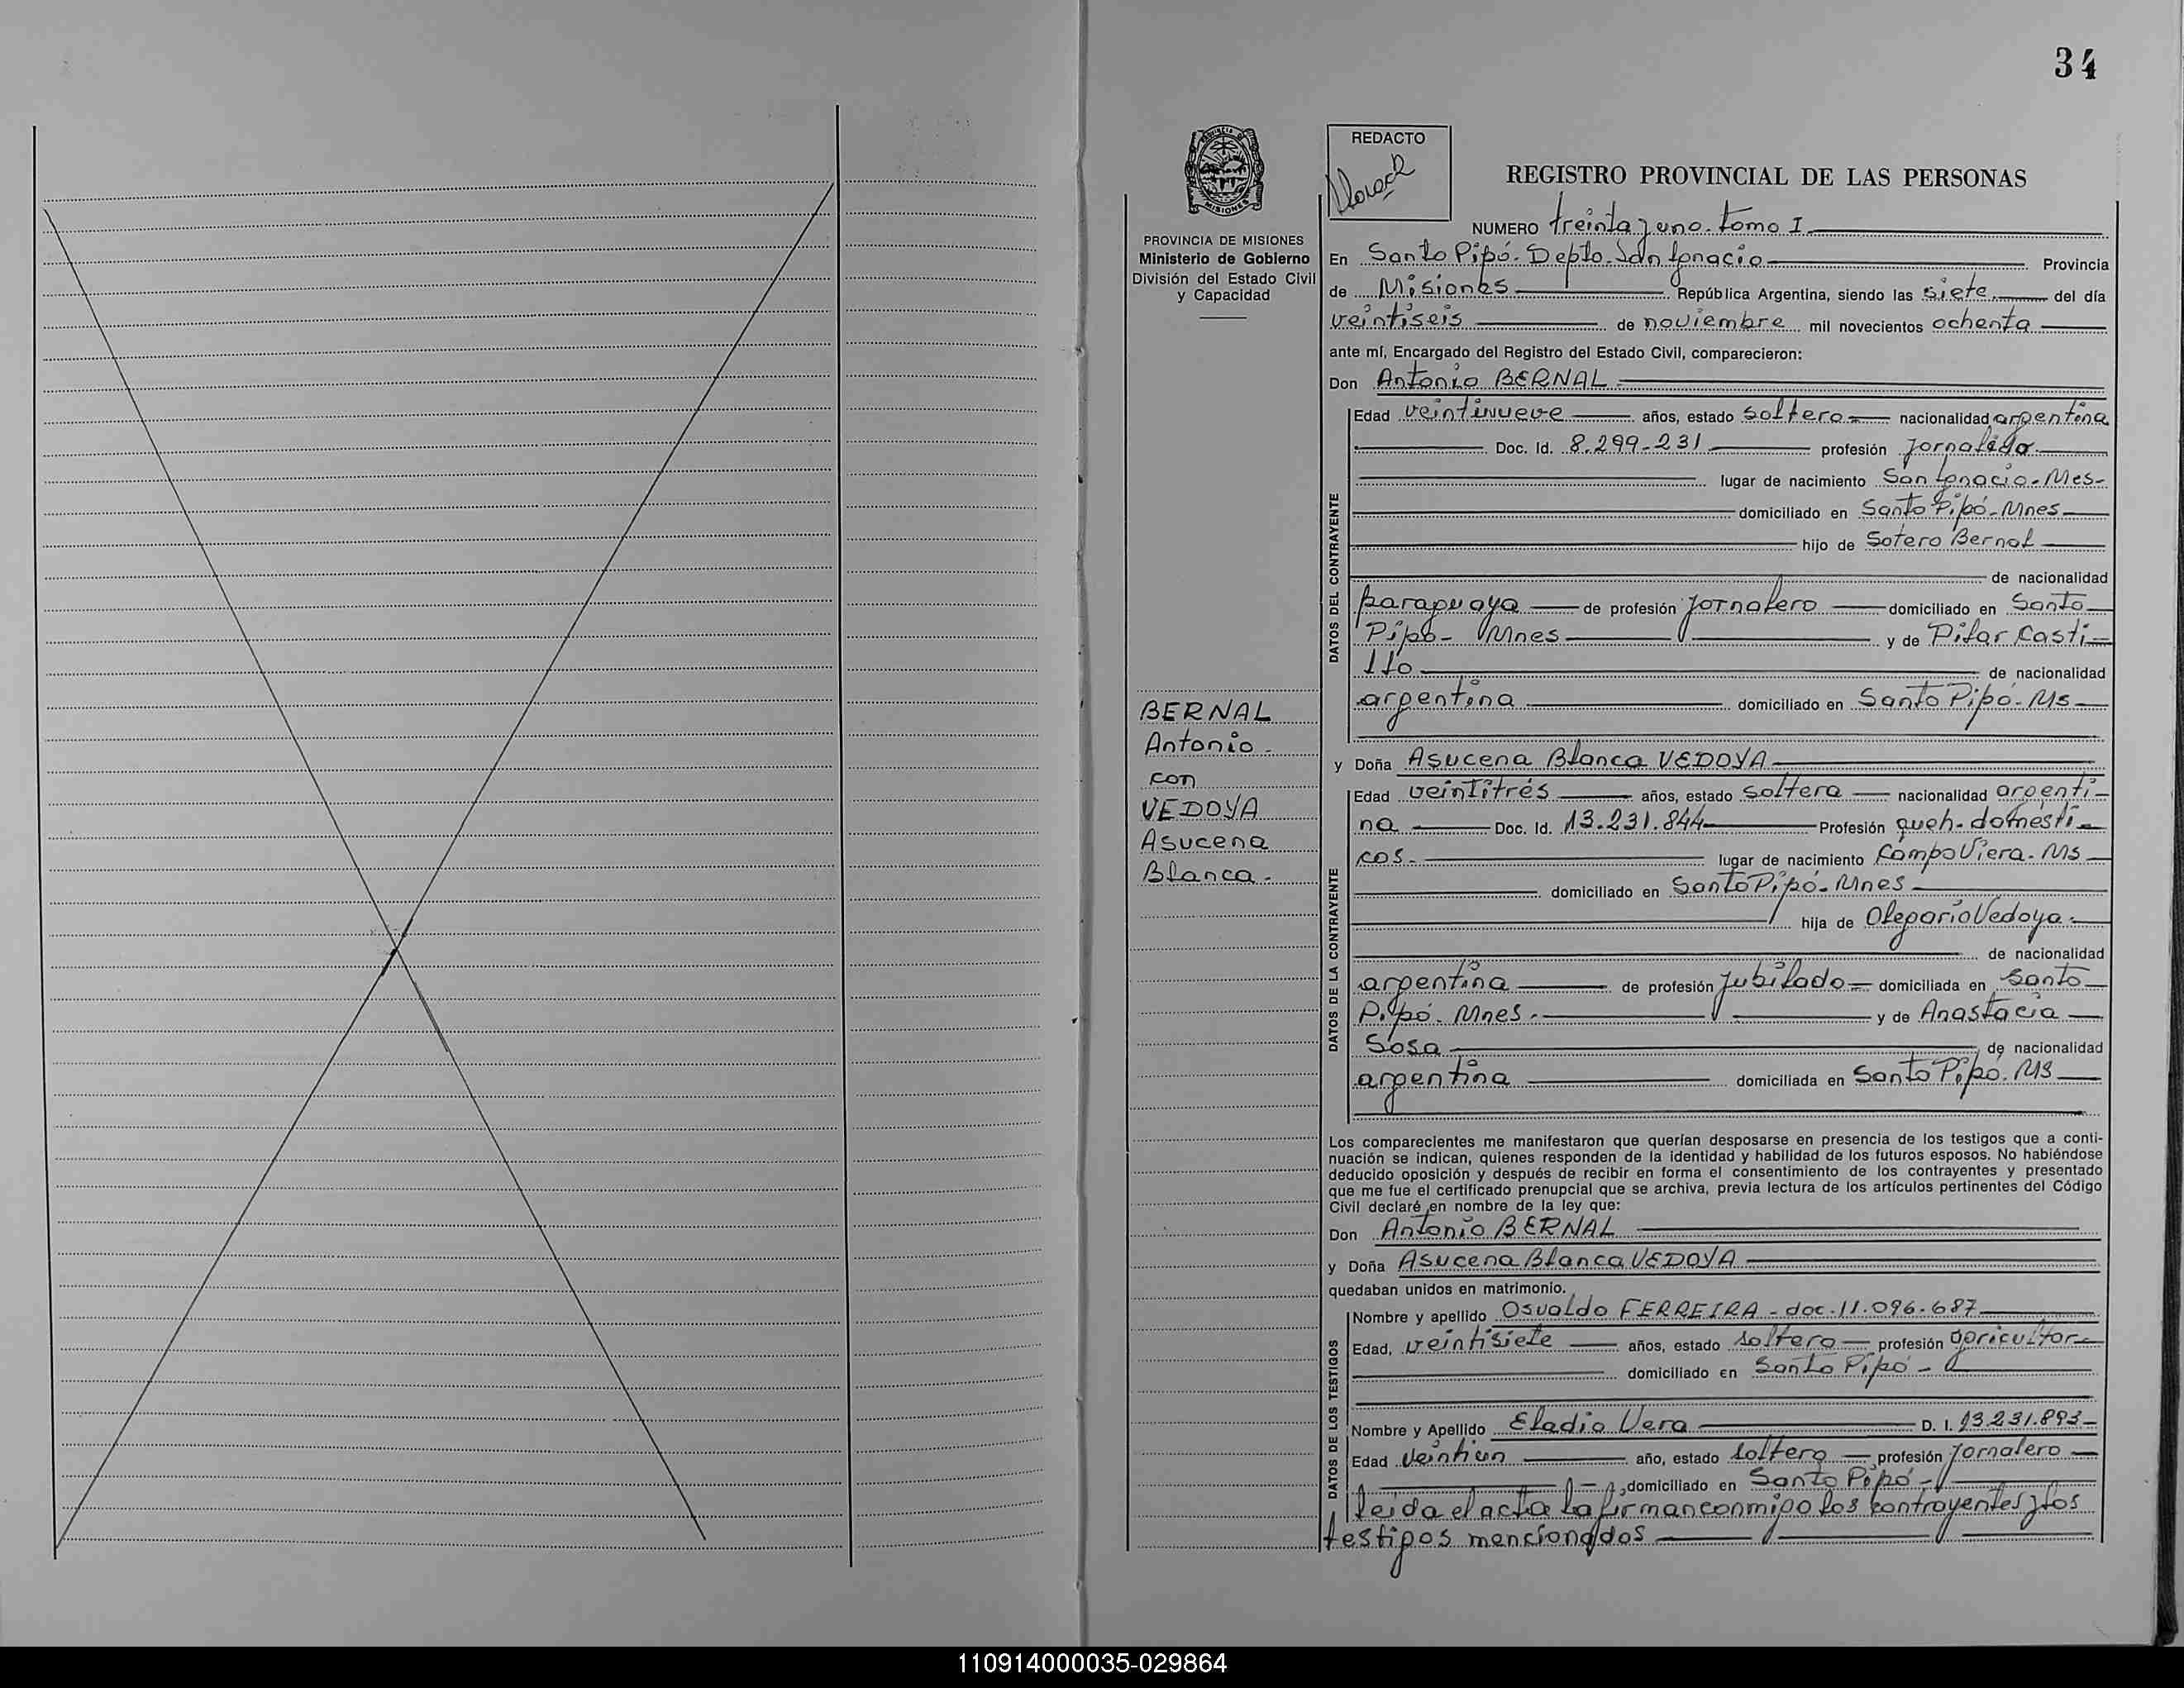 34
REDACTO
REGISTRO PROVINCIAL DE LAS PERSONAS
NUMERO treinta y uno. tomo I
PROVINCIA DE MISIONES
Ministerio de Gobierno
División del Estado Civil
y Capacidad
En Santo Pipó. Depto. San Ignacio Provincia
de Misiones República Argentina, siendo las siete del día
veintiseis de noviembre mil novecientos ochenta
ante mí, Encargado del Registro del Estado Civil, comparecieron:
Don Antonio BERNAL
DATOS DEL CONTRAYENTE
Edad veintinueve años, estado soltero nacionalidad argentina
Doc. Id. 8.299.231 profesión Jornalero
lugar de nacimiento San Ignacio. Mes-
domiciliado en Santo Pipó-Mnes
hijo de Sotero Bernal
de nacionalidad
paraguaya de profesión Jornalero domiciliado en Santo
Pipó- Mnes y de Pilar Casti-
llo de nacionalidad
argentina domiciliado en Santo Pipó. Ms
BERNAL
Antonio -
con
VEDOYA
Asucena
Blanca -
y Doña Asucena Blanca VEDOYA
DATOS DE LA CONTRAYENTE
Edad veintitrés años, estado soltera nacionalidad argenti-
na Doc. Id. 13.231.844 Profesión queh. domésti-
cos- lugar de nacimiento Campo Viera. Ms
domiciliado en Santo Pipó- Mnes
hija de Olegario Vedoya
de nacionalidad
argentina de profesión Jubilado domiciliada en Santo
Pipó. Mnes. y de Anastacia
Sosa de nacionalidad
argentina domiciliada en Santo Pipó. Ms
Los comparecientes me manifestaron que querían desposarse en presencia de los testigos que a conti-
nuación se indican, quienes responden de la identidad y habilidad de los futuros esposos. No habiéndose
deducido oposición y después de recibir en forma el consentimiento de los contrayentes y presentado
que me fue el certificado prenupcial que se archiva, previa lectura de los artículos pertinentes del Código
Civil declaré en nombre de la ley que:
Don Antonio BERNAL
y Doña Asucena Blanca VEDOYA
quedaban unidos en matrimonio.
DATOS DE LOS TESTIGOS
Nombre y apellido Osvaldo FERREIRA - doc. 11.096.687
Edad, veintisiete años, estado soltero profesión agricultor
domiciliado en Santo Pipó -
Nombre y Apellido Eladio Vera D. I. 13.231.893-
Edad veintiun año, estado soltero profesión Jornalero
domiciliado en Santo Pipó -
leida el acta la firman conmigo los contrayentes y los
testigos mencionados
110914000035-029864